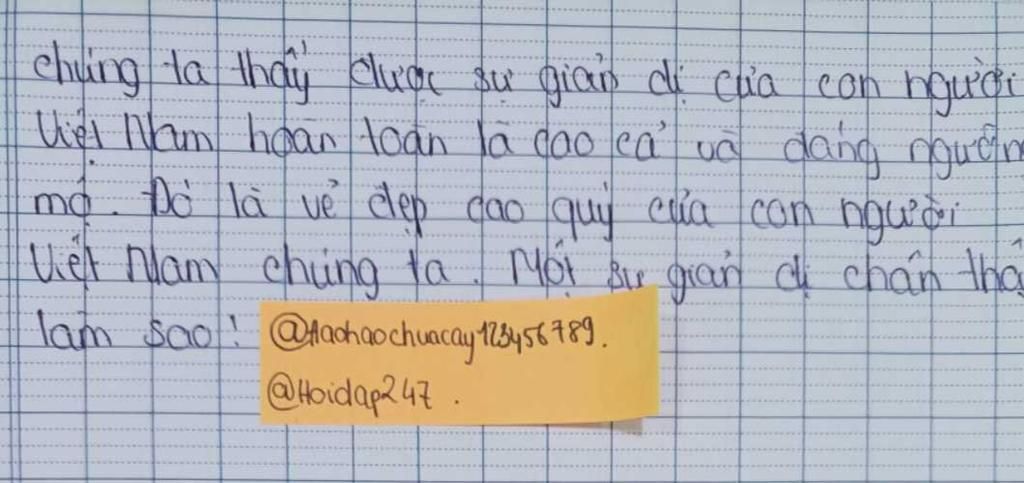 chúng ta thấy được sự giản dị của con người
Việt Nam hoàn toàn là cao cả và đáng ngưỡn
mộ. Đó là vẻ đẹp cao quý của con người
Việt Nam chúng ta. Một sự giản dị chân thậ
làm sao!
@Haohaochuacay123456789.
@Hoidap247.